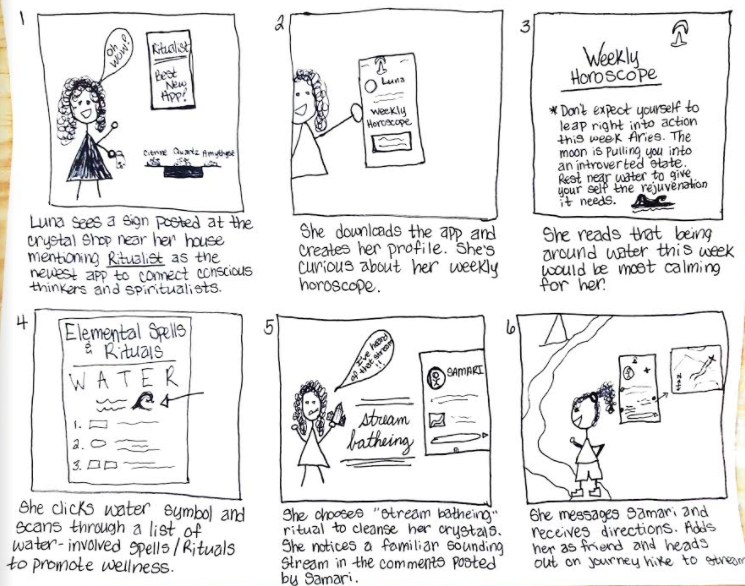 1
Oh wow!
Ritualist
Best
New
App!
Citrine Quartz Amythyst
Luna sees a sign posted at the
crystal shop near her house
mentioning Ritualist as the
newest app to connect conscious
thinkers and spiritualists.
2
Luna
Weekly
Horoscope
She downloads the app and
creates her profile. She's
curious about her weekly
horoscope.
3
Weekly
Horoscope
* Don't expect yourself to
leap right into action
this week Aries. The
moon is pulling you into
an introverted state.
Rest near water to give
your self the rejuvenation
it needs.
She reads that being
around water this week
would be most calming
for her.
4
Elemental Spells
& Rituals
WATER
1.
2.
3.
She clicks water symbol and
scans through a list of
water-involved Spells/Rituals
to promote wellness.
5
I've heard
of that stream!!
stream
batheing
SAMARI
She chooses "stream batheing"
ritual to cleanse her crystals.
She notices a familiar sounding
stream in the comments posted
by Samari.
6
She messages Samari and
receives directions. Adds
her as friend and heads
out on journey hike to stream